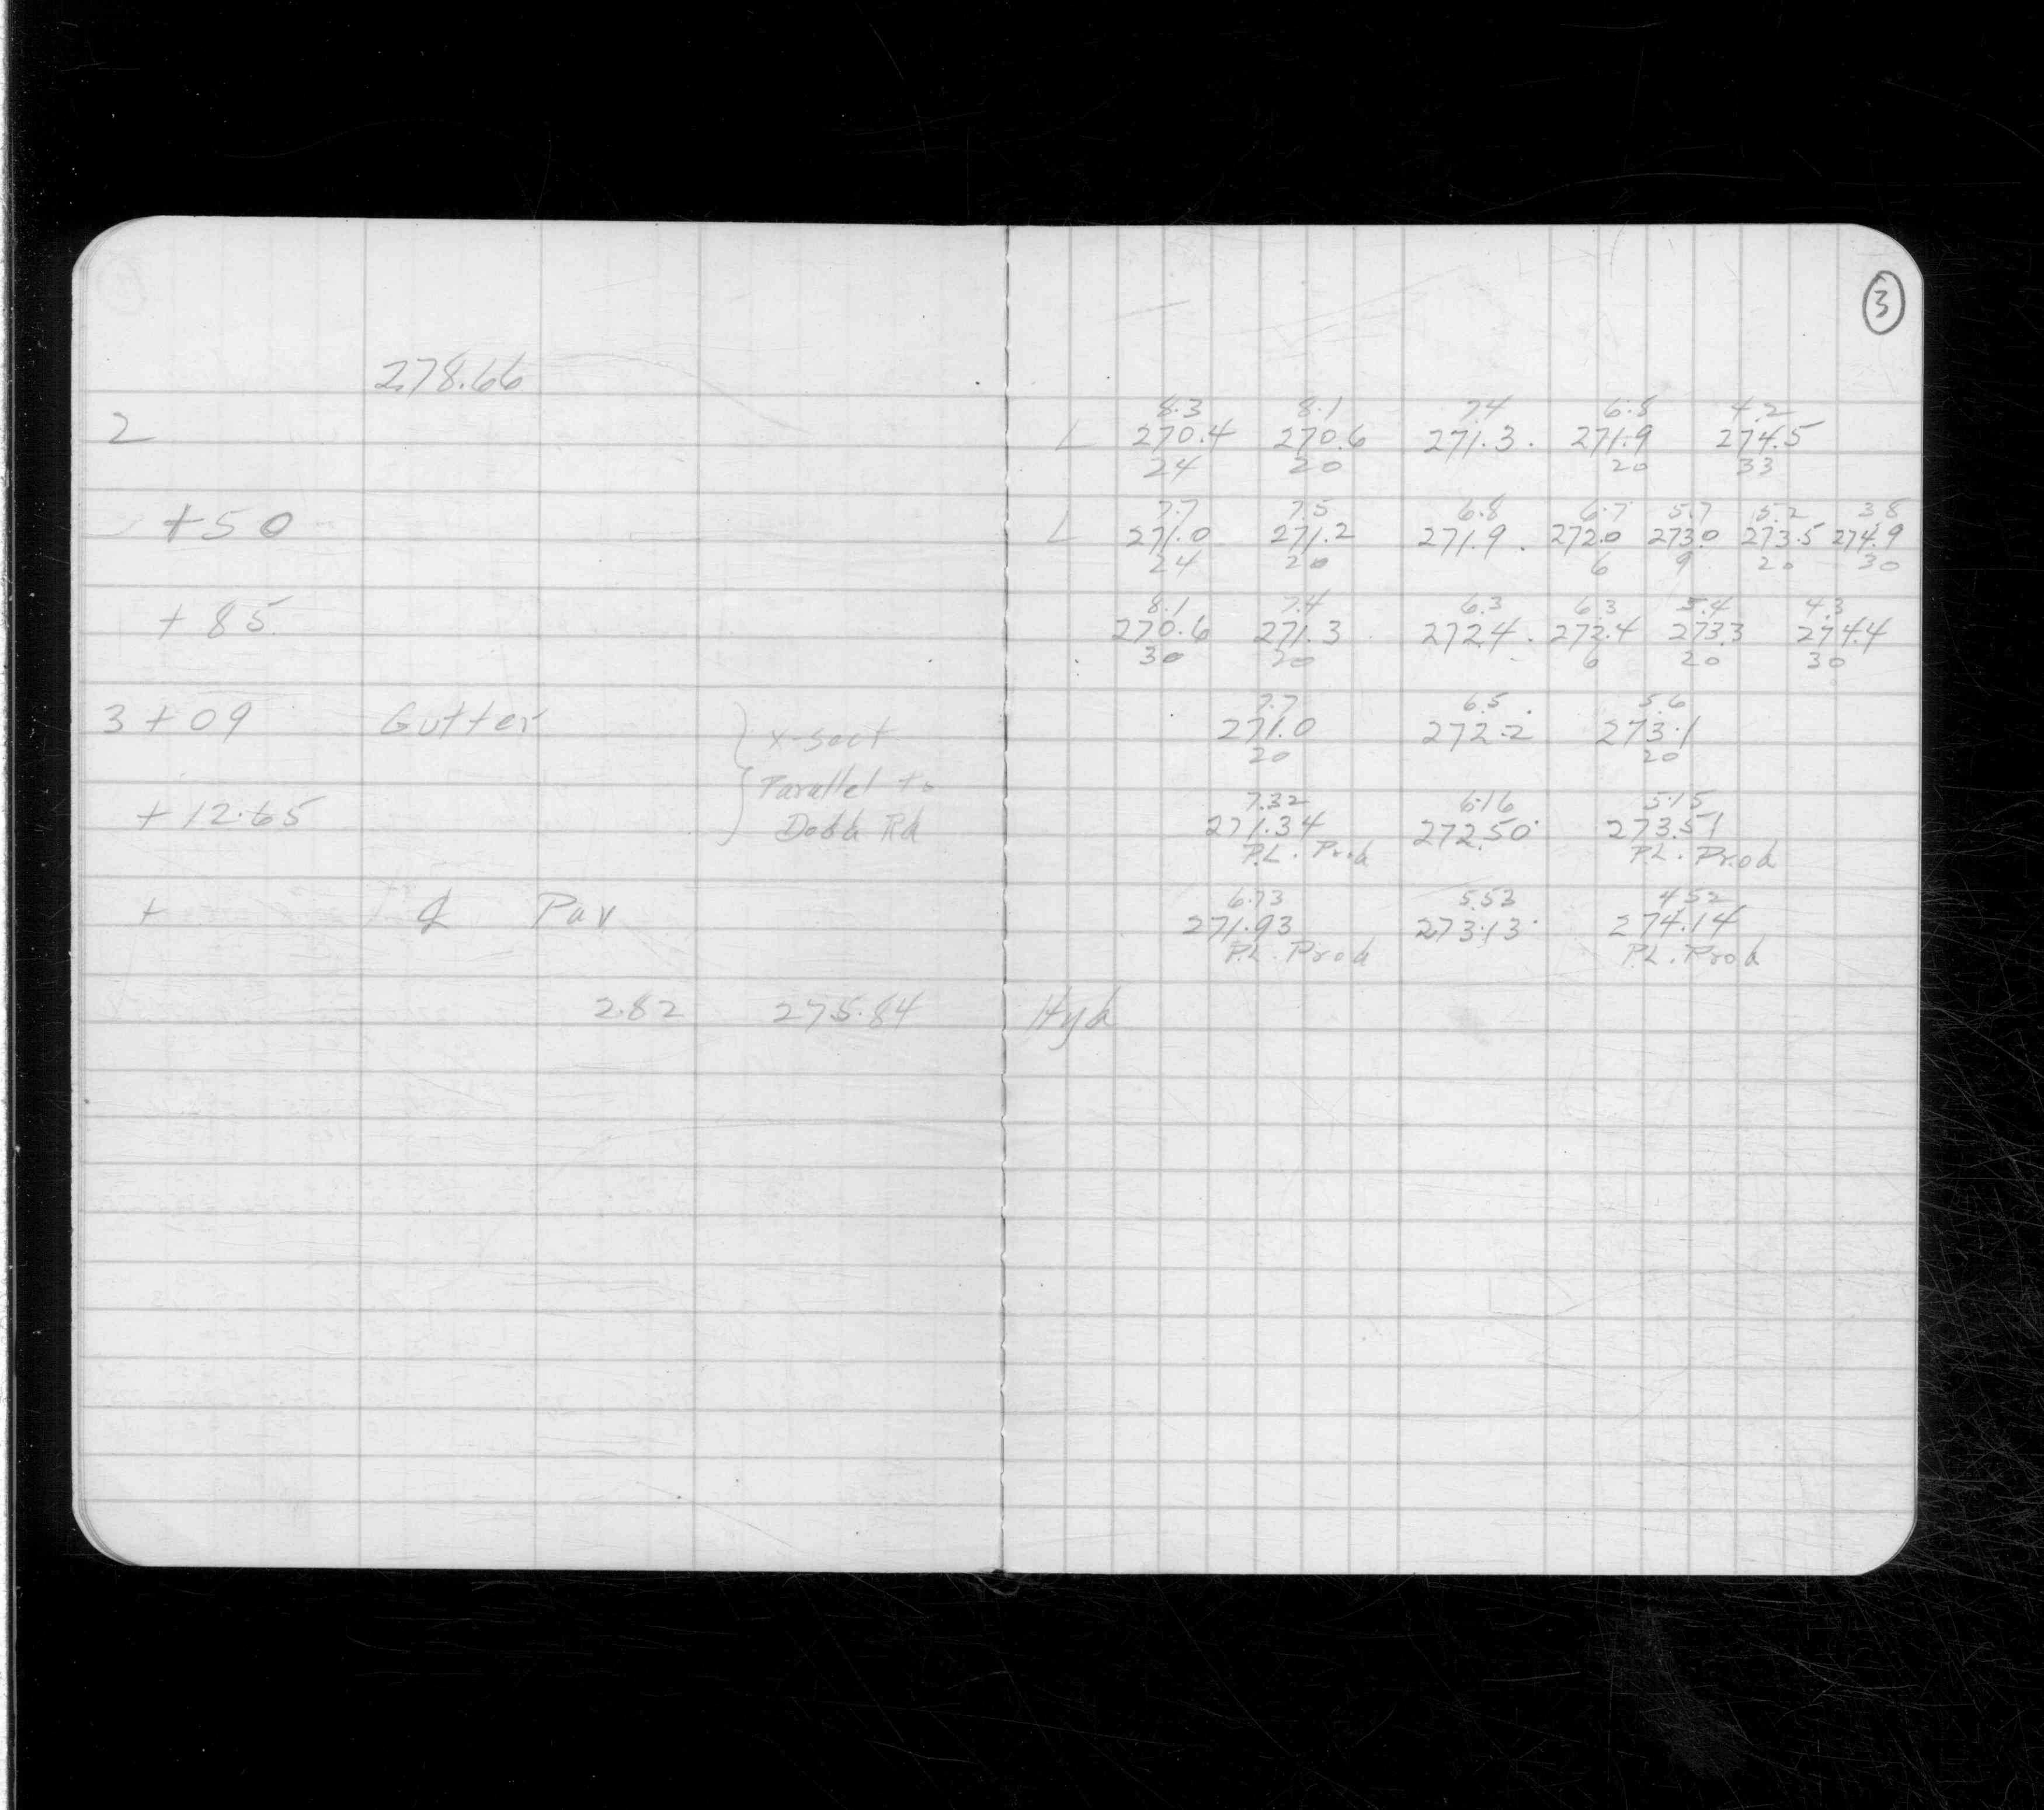 3
278.66
8.3 8.1 7.4 6.8 4.2
2 L 270.4 270.6 271.3. 271.9 274.5
24 20 20 33
7.7 7.5 6.8 6.7 5.7 5.2 3.8
+50 L 271.0 271.2 271.9. 272.0 273.0 273.5 274.9
24 20 6 9 20 30
8.1 7.4 6.3 6.3 5.4 4.3
+85 270.6 271.3 272.4. 272.4 273.3 274.4
30 20 6 20 30
7.7 6.5 5.6
3+09 Gutter 271.0 272.2 273.1
x-sect 20 20
Parallel to 7.32 6.16 5.15
+12.65 Dodd Rd 271.34 272.50 273.51
P.L. Prod P.L. Prod
6.73 5.53 4.52
+ ₵ Pav 271.93 273.13 274.14
P.L. Prod P.L. Prod
2.82 275.84 Hyd